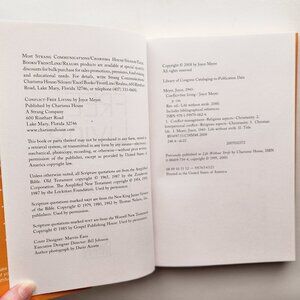 Most Strang Communications/Charisma House/Siloam/Excel
Books/FrontLine/Realms products are available at special quantity
discounts for bulk purchase for sales promotions, premiums, fund-raising,
and educational needs. For details, write Strang Communications/
Charisma House/Siloam/Excel Books/FrontLine/Realms, 600 Rinehart
Road, Lake Mary, Florida 32746, or telephone
Conflict-Free Living by Joyce Meyer
Published by Charisma House
A Strang Company
600 Rinehart Road
Lake Mary, Florida 32746
www.charismahouse.com
This book or parts thereof may not be reproduced in any form, stored in
a retrieval system, or transmitted in any form by any means—electronic,
mechanical, photocopy, recording, or otherwise—without prior written
permission of the publisher, except as provided by United States of
America copyright law.
Unless otherwise noted, all Scripture quotations are from the Amplified
Bible. Old Testament copyright © 1965, 1987 by the Zondervan
Corporation. The Amplified New Testament copyright © 1954, 1958, 1987
by the Lockman Foundation. Used by permission.
Scripture quotations marked nkjv are from the New King James Version
of the Bible. Copyright © 1979, 1980, 1982 by Thomas Nelson, Inc.
Used by permission.
Scripture quotations marked are from the Worrell New Testament
Copyright © 1985 by Gospel Publishing House. Used by permission.
Cover Designer: Marvin Eans
Executive Design Director: Bill Johnson
Author photograph by Dario Acosta
Copyright © 2008 by Joyce Meyer
All rights reserved
Library of Congress Cataloging-in-Publication Data
Meyer, Joyce, 1943-
Conflict-free living / Joyce Meyer.
p. cm.
Rev. ed. of: Life without strife. 2000.
Includes bibliographical references.
1. Conflict management--Religious aspects--Christianity. 2.
Interpersonal relations--Religious aspects--Christianity. 3. Christian
life. I. Meyer, Joyce, 1943- Life without strife. II. Title.
Previously published as Life Without Strife by Charisma House, ISBN
Printed in the United States of America